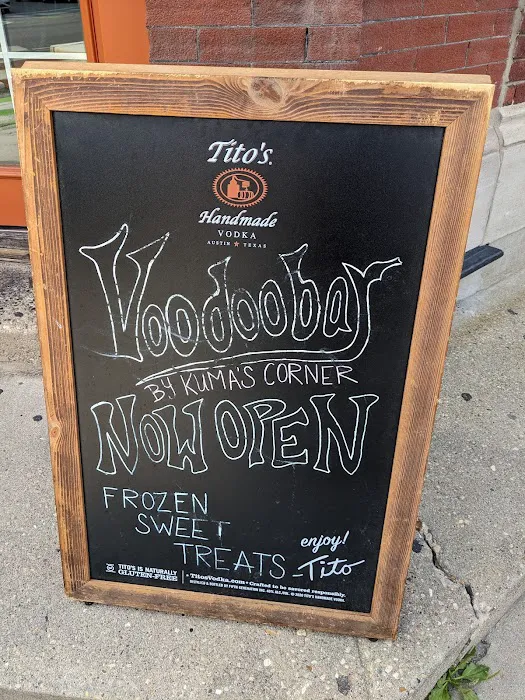 Tito's.
Handmade
VODKA
AUSTIN ★ TEXAS
Voodoobar
BY KUMA'S CORNER
NOW OPEN
FROZEN
SWEET
TREATS
enjoy!
-Tito
TITO'S IS NATURALLY
GLUTEN-FREE
• TitosVodka.com • Crafted to be savored responsibly.